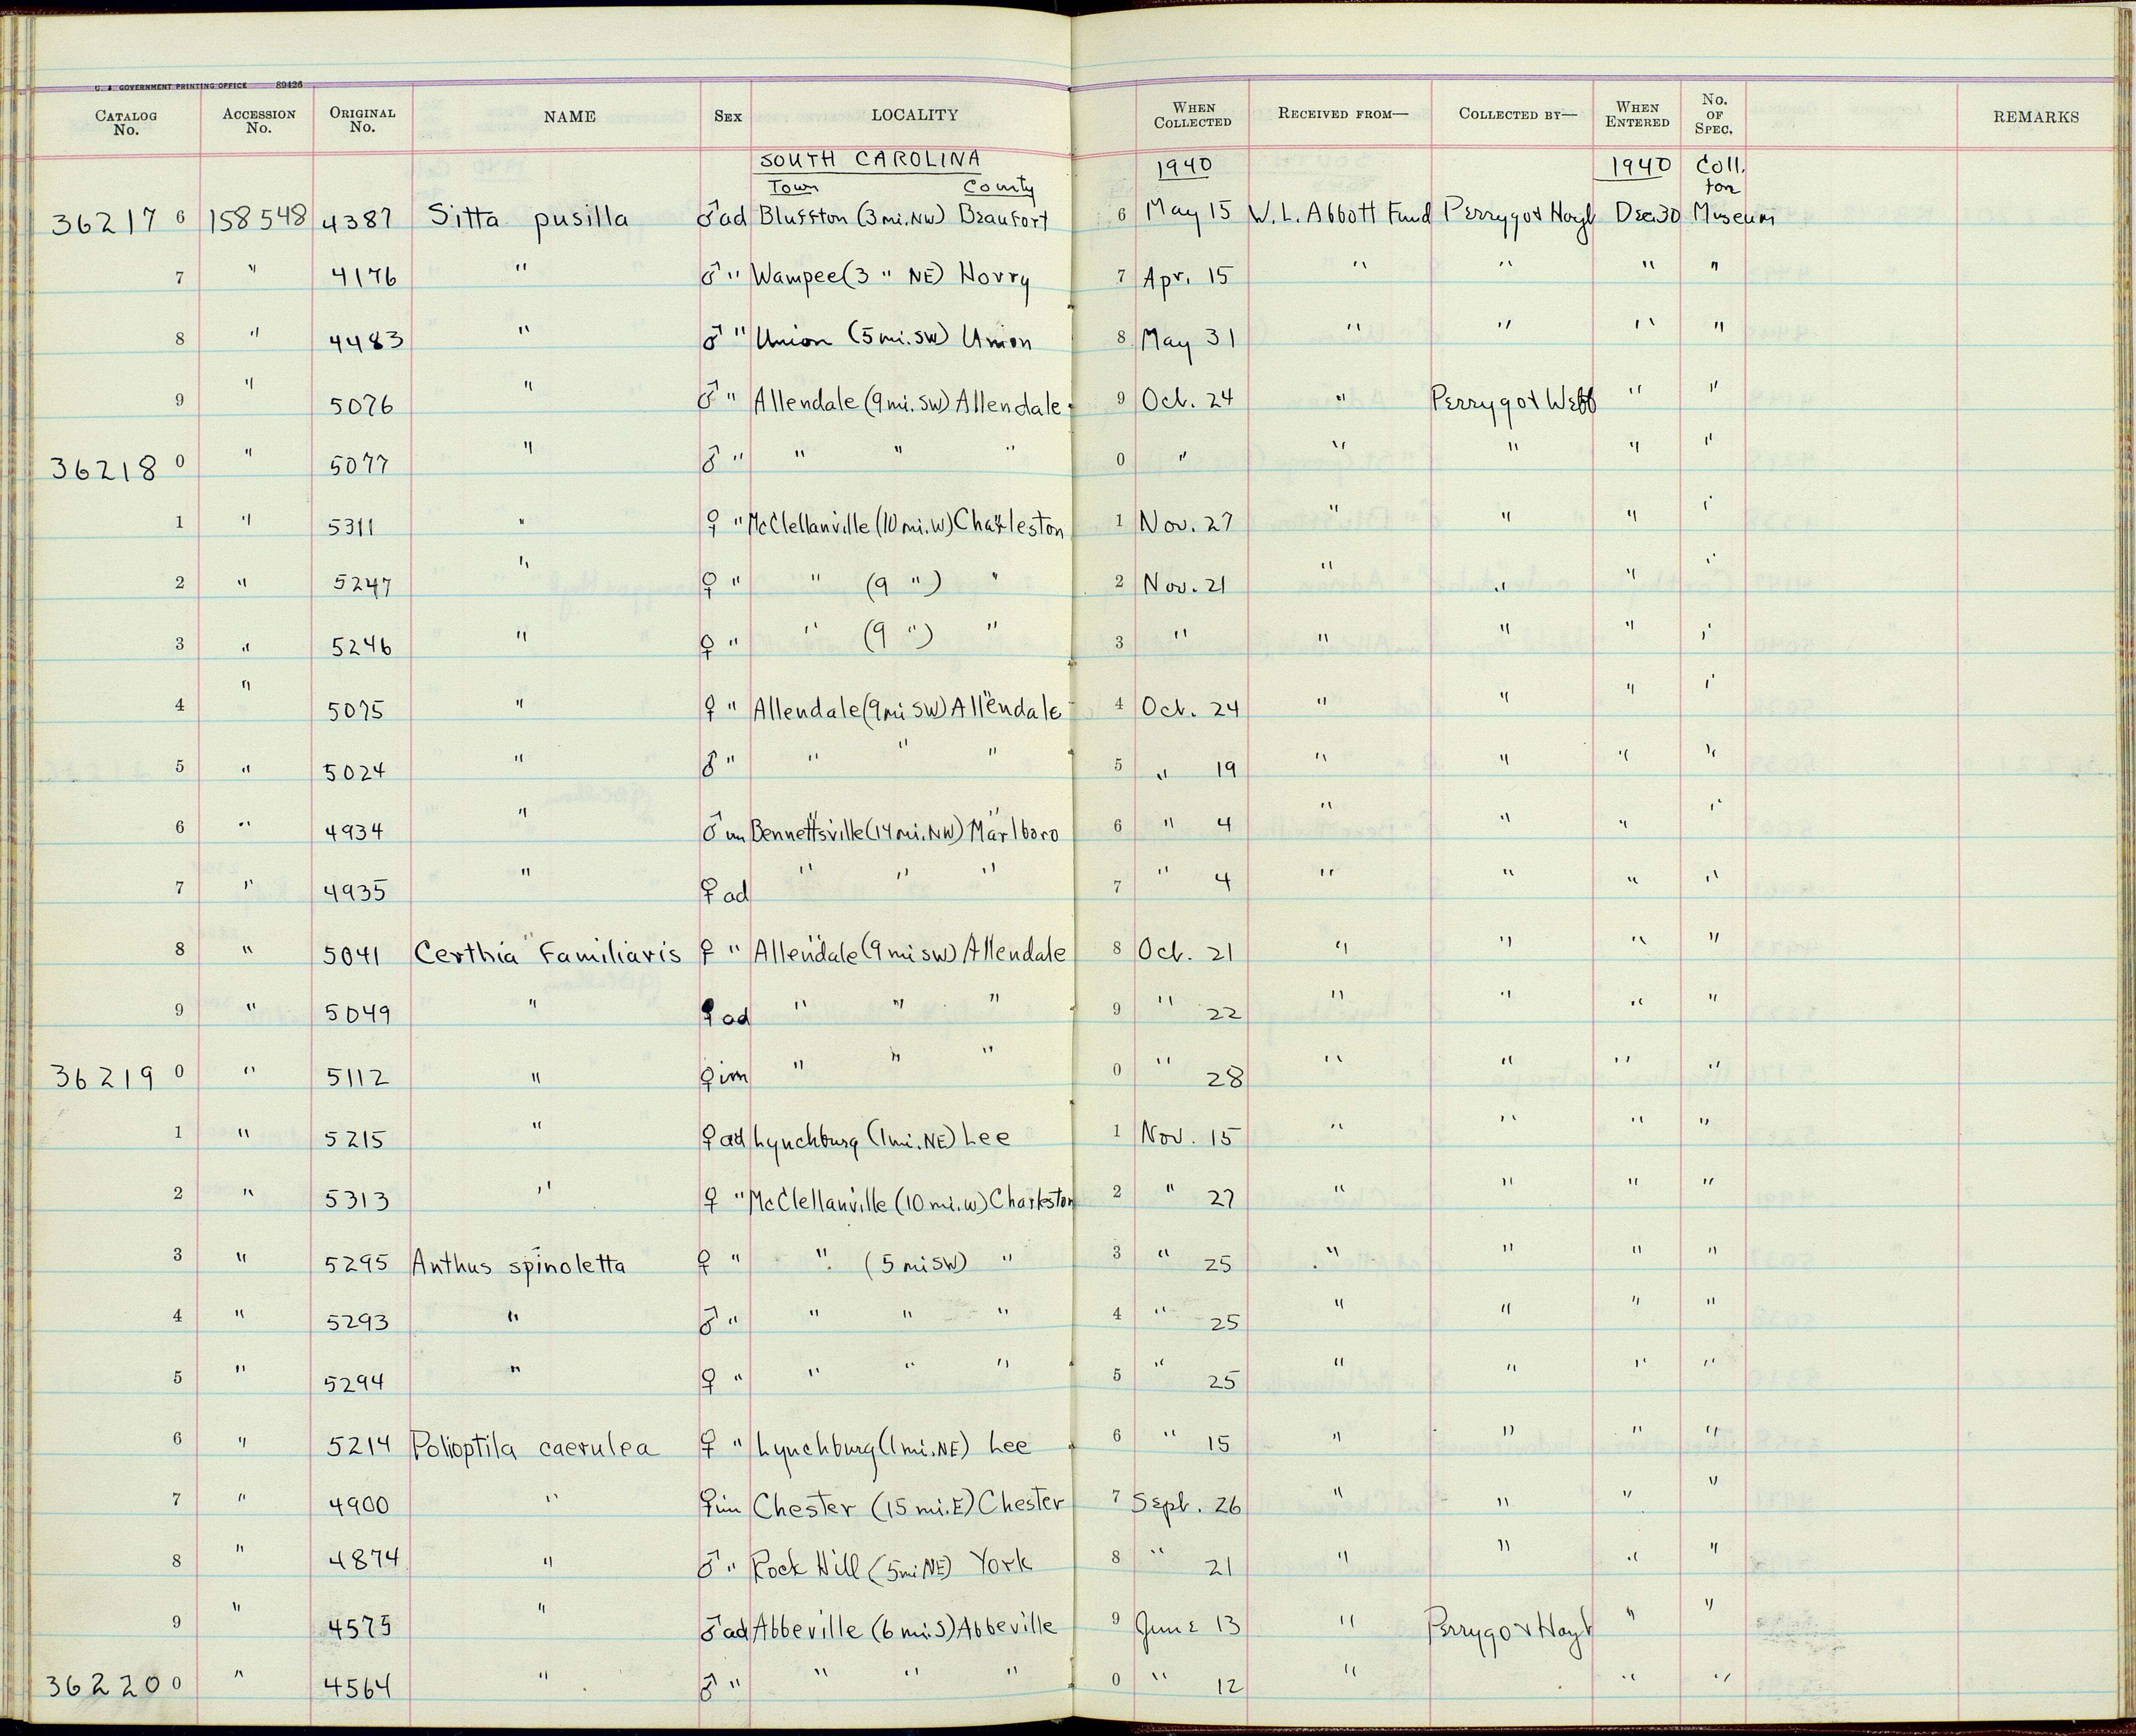 U. S. GOVERNMENT PRINTING OFFICE 89426
CATALOG No. ACCESSION No. ORIGINAL No. NAME SEX LOCALITY WHEN COLLECTED RECEIVED FROM— COLLECTED BY— WHEN ENTERED No. OF SPEC. REMARKS
SOUTH CAROLINA 1940 1940 Coll.
Town County for
36217 6 158548 4387 Sitta pusilla ♂ad Bluffton (3mi.NW) Beaufort 6 May 15 W.L. Abbott Fund Perrygo+Hoyt Dec.30 Museum
7 " 4176 " ♂ " Wampee(3 " NE) Horry 7 Apr. 15 " " " "
8 " 4483 " ♂ " Union (5mi.SW) Union 8 May 31 " " " "
9 " 5076 " ♂ " Allendale (9mi.SW) Allendale 9 Oct. 24 " Perrygo+Webb " "
36218 0 " 5077 " ♂ " " " " 0 " " " " "
1 " 5311 " ♀ " McClellanville (10mi.W) Charleston 1 Nov. 27 " " " "
2 " 5247 " ♀ " " (9 ") " 2 Nov. 21 " " " "
3 " 5246 " ♀ " " (9 ") " 3 " " " " "
4 " 5075 " ♀ " Allendale (9mi SW) Allendale 4 Oct. 24 " " " "
5 " 5024 " ♂ " " " " 5 " 19 " " " "
6 " 4934 " ♂ im Bennettsville (14mi.NW) Marlboro 6 " 4 " " " "
7 " 4935 " ♀ ad " " " 7 " 4 " " " "
8 " 5041 Certhia familiaris ♀ " Allendale (9mi SW) Allendale 8 Oct. 21 " " " "
9 " 5049 " ♀ ad " " " 9 " 22 " " " "
36219 0 " 5112 " ♀ im " " " 0 " 28 " " " "
1 " 5215 " ♀ ad Lynchburg (1mi.NE) Lee 1 Nov. 15 " " " "
2 " 5313 " ♀ " McClellanville (10mi.W) Charleston 2 " 27 " " " "
3 " 5295 Anthus spinoletta ♀ " " (5 mi SW) " 3 " 25 " " " "
4 " 5293 " ♂ " " " " 4 " 25 " " " "
5 " 5294 " ♀ " " " " 5 " 25 " " " "
6 " 5214 Polioptila caerulea ♀ " Lynchburg (1mi.NE) Lee 6 " 15 " " " "
7 " 4900 " ♀ im Chester (15 mi.E) Chester 7 Sept. 26 " " " "
8 " 4874 " ♂ " Rock Hill (5mi NE) York 8 " 21 " " " "
9 " 4575 " ♂ ad Abbeville (6 mi.S) Abbeville 9 June 13 " Perrygo+Hoyt " "
36220 0 " 4564 " ♂ " " " " 0 " 12 " " "